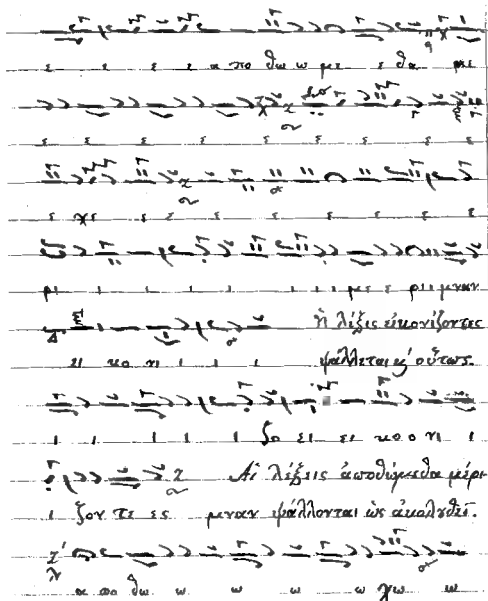 ε ε ε ε ε α πο θω ω με ε θα με
ε ε ε ε ε ε ε ε ε
ε χε ε ε ε ε ε ε ε ε
ρι ι ι ι ι ι ι ι με ε ρι ι μναν
Ἡ λέξις εἰκονίζοντες
ει κο νι ι ι ι ψάλλεται κ' οὕτως.
ι ι ι ι ι ζο ει ει κο ο νι ι
Αἱ λέξεις ἀποθώμεθα μέρι-
ι ζον τε ες μναν ψάλλονται ὡς ἀκολουθεῖ.
α πο θω ω ω ω ω χω ω